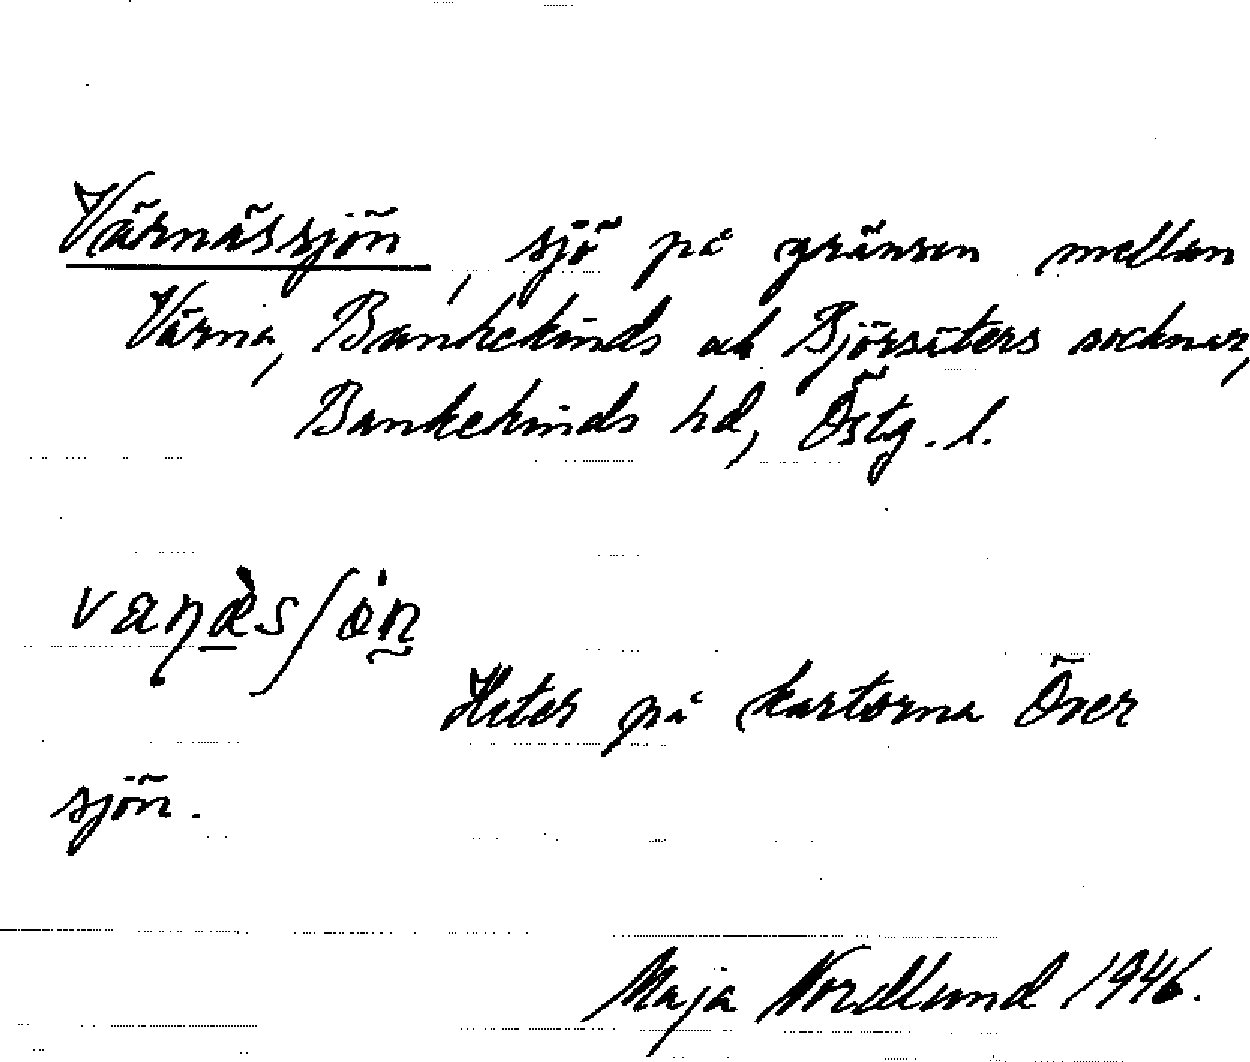 Värnässjön, sjö på gränsen mellan
Värna, Bankekinds och Björsäters socknar,
Bankekinds hd, Östg. l.
Heter på kartorna Över
sjön.
Maja Nordlund 1946.